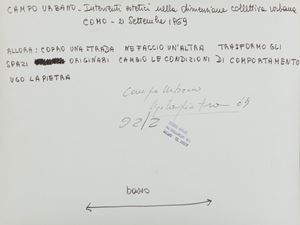 CAMPO URBANO - Interventi estetici nella dimensione collettiva urbana
COMO - 21 Settembre 1969
ALLORA: COPRO UNA STRADA NE FACCIO UN'ALTRA TRASFORMO GLI
SPAZI ORIGINARI CAMBIO LE CONDIZIONI DI COMPORTAMENTO
UGO LA PIETRA
Campo Urbano
Ugo la Pietra 69
92/2
basso